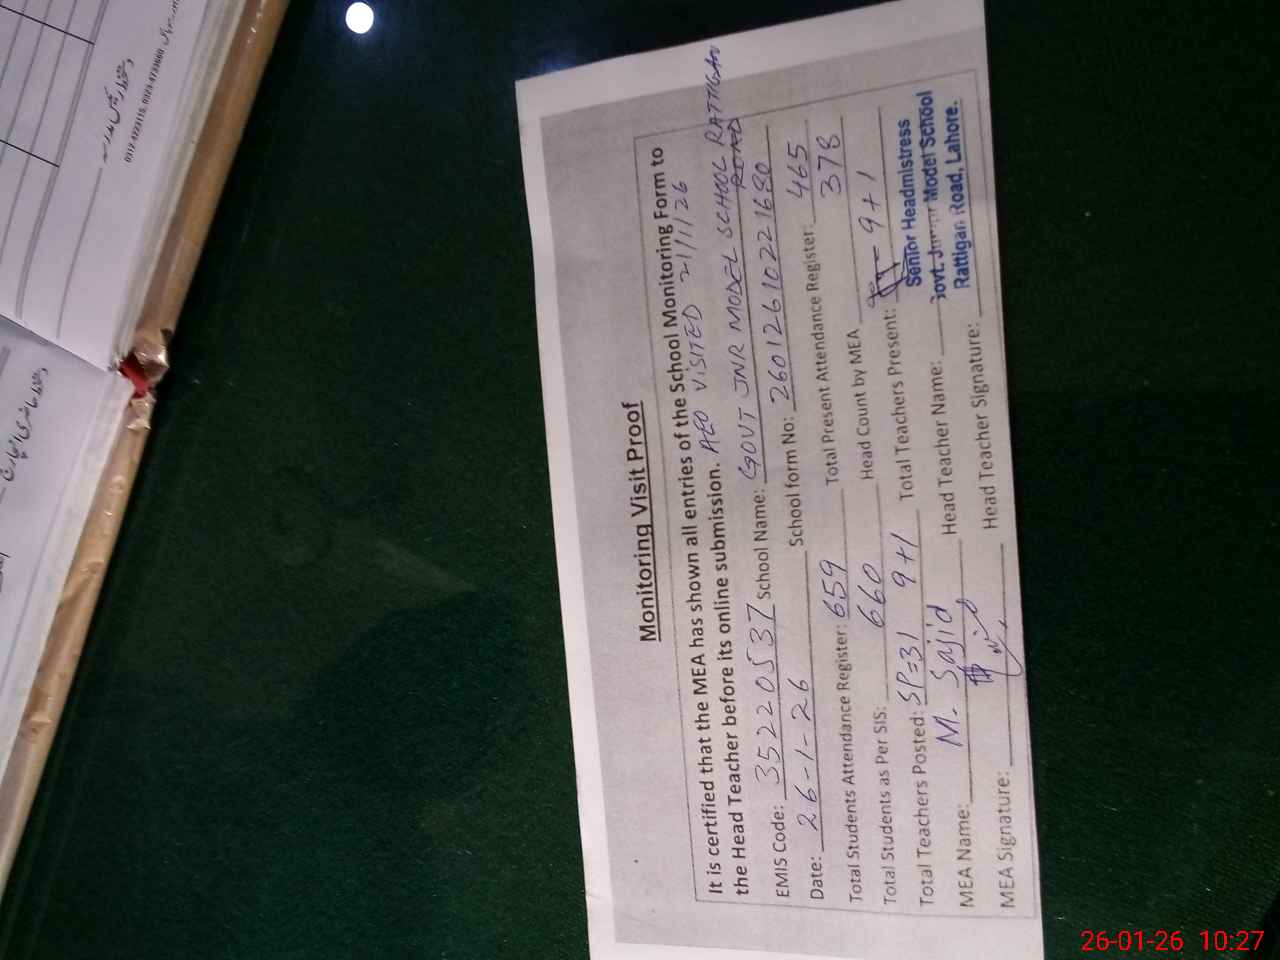 Monitoring Visit Proof
It is certified that the MEA has shown all entries of the School Monitoring Form to
the Head Teacher before its online submission. AEO VISITED 21/1/26
EMIS Code: 35220537 School Name: GOVT JNR MODEL SCHOOL RATTIGAN
ROAD
Date: 26-1-26 School form No: 26012610221680
Total Students Attendance Register: 659 Total Present Attendance Register: 465
Total Students as Per SIS: 660 Head Count by MEA 378
Total Teachers Posted: SP=31 9+1 Total Teachers Present: 9+1
MEA Name: M. Sajid Head Teacher Name:
MEA Signature: Head Teacher Signature:
Senior Headmistress
Govt. Junior Model School
Rattigan Road, Lahore.
26-01-26 10:27